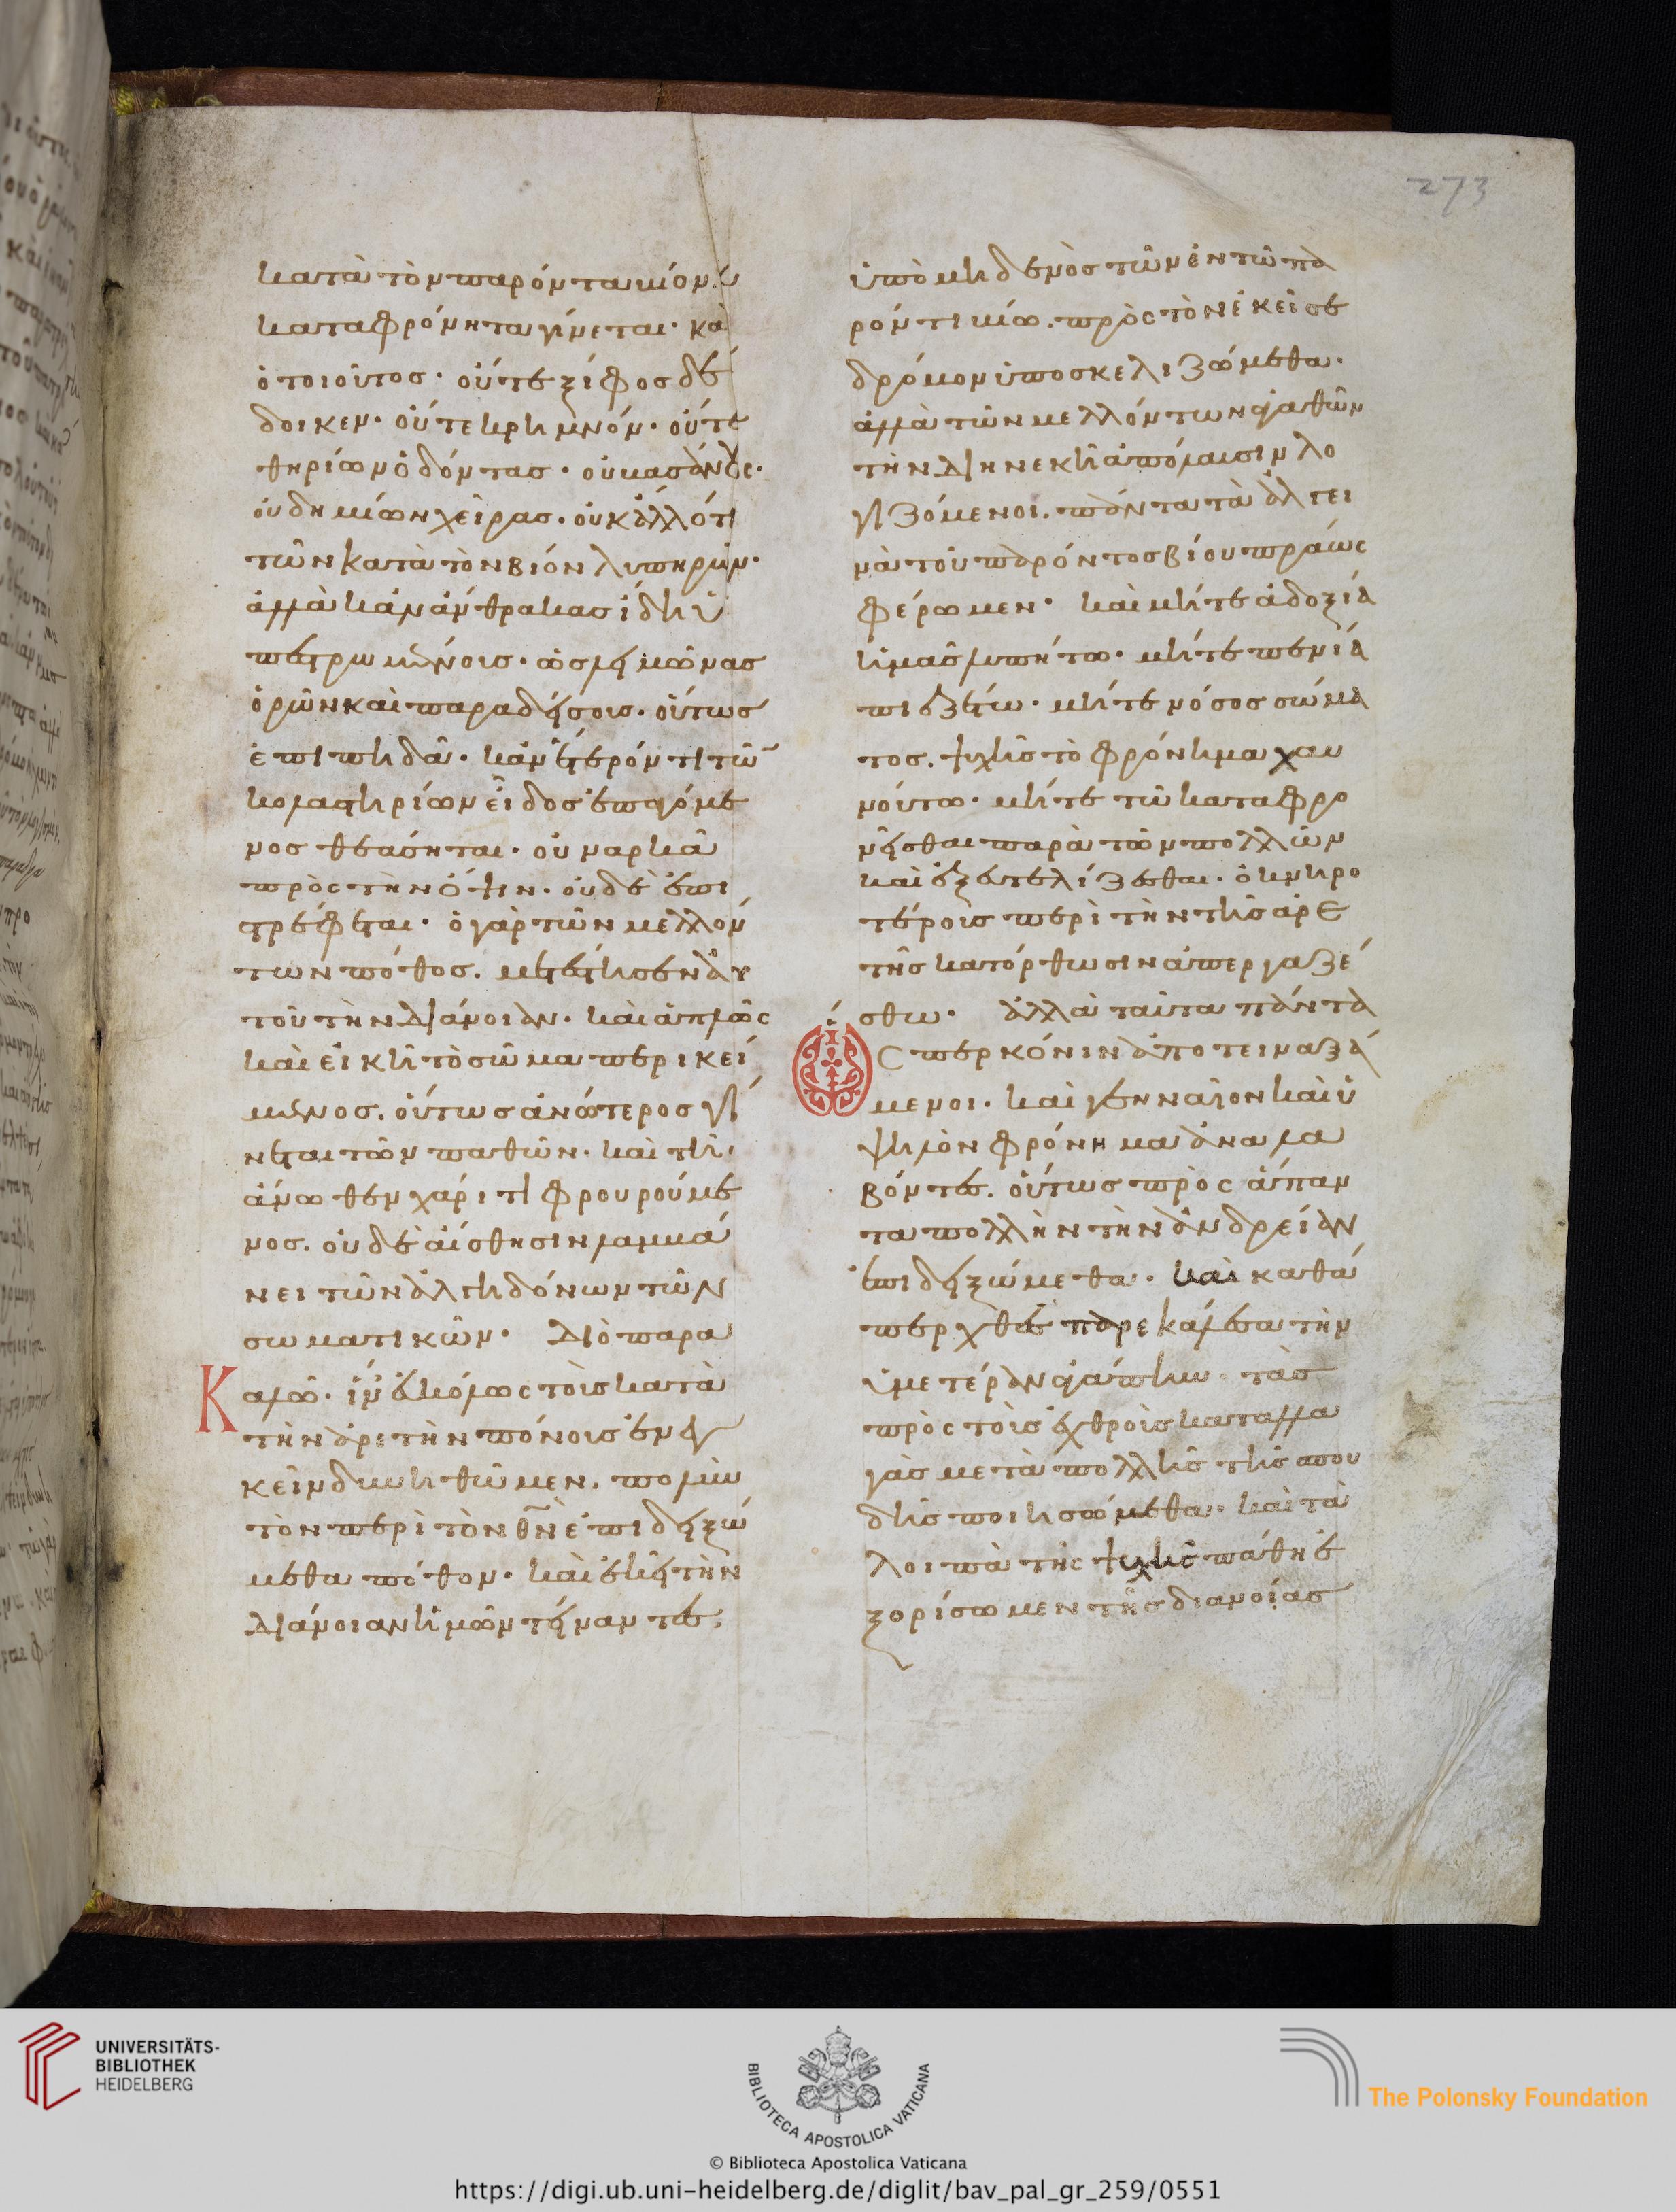 κατὰ τὸν παρόντα βίον εὐ
καταφρόνητα γίνεται· καὶ
ὁ τοιοῦτος· οὔτε ξίφος δέ
δοικεν· οὔτε κρημνόν· οὔτε
θηρίων ὀδόντας· οὐ βασάνους·
οὐ δημίων χεῖρας· οὐκ ἄλλό τι
τῶν κατὰ τὸν βίον λυπηρῶν·
ἀλλὰ κἂν ἄνθρακας ἴδη ὑ
πεστρωμένους· ὡς λειμῶνας
ὁρῶν καὶ παραδείσους· οὕτως
ἐπιπηδᾶ· κἂν ἕτερόν τι τῶν
κολαστηρίων εἶδος ἐπαγόμε
νος θεάσηται· οὐ ναρκᾶ
πρὸς τὴν ὄψιν· οὐδὲ ἐπι
στρέφεται· ὁ γὰρ τῶν μελλόν
των πόθος. μετέστησεν αὐ
τοῦ τὴν διάνοιαν· καὶ ἁπλῶς
καὶ εἰκῆ τὸ σῶμα περικεί
μενος. οὕτως ἀνώτερος γί
νεται τῶν παθῶν· καὶ τῆ
ἄνωθεν χάριτι φρουρούμε
νος. οὐδὲ αἴσθησιν λαμβά
νει τῶν ἀλγηδόνων τῶν
σωματικῶν· Διὸ παρα
Καλῶ· ἵν' εὐκόλως τοῖς κατὰ
τὴν ἀρετὴν πόνοις ἐνεγ
κεῖν δυνηθῶμεν, πολὺν
τὸν περὶ τὸν θν ἐπιδειξώ
μεθα πόθον· καὶ ἐκεῖ τὴν
διάνοιαν ἡμῶν τείναντες,
ὑπὸ μηδενὸς τῶν ἐν τῶ πα
ρόντι βίω. πρὸς τὸν ἐκεῖσε
δρόμον ὑποσκελιζώμεθα·
ἀλλὰ τῶν μελλόντων ἀγαθῶν
τὴν διηνεκῆ ἀπόλαυσιν λο
γιζόμενοι. πάντα τὰ ἀλγει
νὰ τοῦ παρόντος βίου πράως
φέρωμεν· καὶ μήτε ἀδοξία
ἡμᾶς λυπήτω· μήτε πενία
πιεζέτω· μήτε νόσος σώμα
τος. ψυχῆς τὸ φρόνημα χαυ
νούτω· μήτε τὸ καταφρο
νεῖσθαι παρὰ τῶν πολλῶν
καὶ ἐξευτελίζεσθαι. ὀκνηρο
τέρους περὶ τὴν τῆς ἀρε
τῆς κατόρθωσιν ἀπεργαζέ
σθω· ἀλλὰ ταῦτα πάντα
ὥσπερ κόνιν ἀποτειναξά
μενοι· καὶ γενναῖον καὶ ὑ
ψηλὸν φρόνημα ἀναλα
βόντες. οὕτως πρὸς ἅπαν
τα πολλὴν τὴν ἀνδρείαν
ἐπιδειξώμεθα· καὶ καθά
περ χθὲς παρεκάλεσα τὴν
ὑμετέραν ἀγάπην· τὰς
πρὸς τοὺς ἐχθροὺς καταλλα
γὰς μετὰ πολλῆς τῆς σπου
δῆς ποιησώμεθα· καὶ τὰ
λοιπὰ τῆς ψυχῆς πάθη ἐ
ξορίσωμεν τῆς διανοίας
273
UNIVERSITÄTS-
BIBLIOTHEK
HEIDELBERG
BIBLIOTECA APOSTOLICA VATICANA
The Polonsky Foundation
© Biblioteca Apostolica Vaticana
https://digi.ub.uni-heidelberg.de/diglit/bav_pal_gr_259/0551